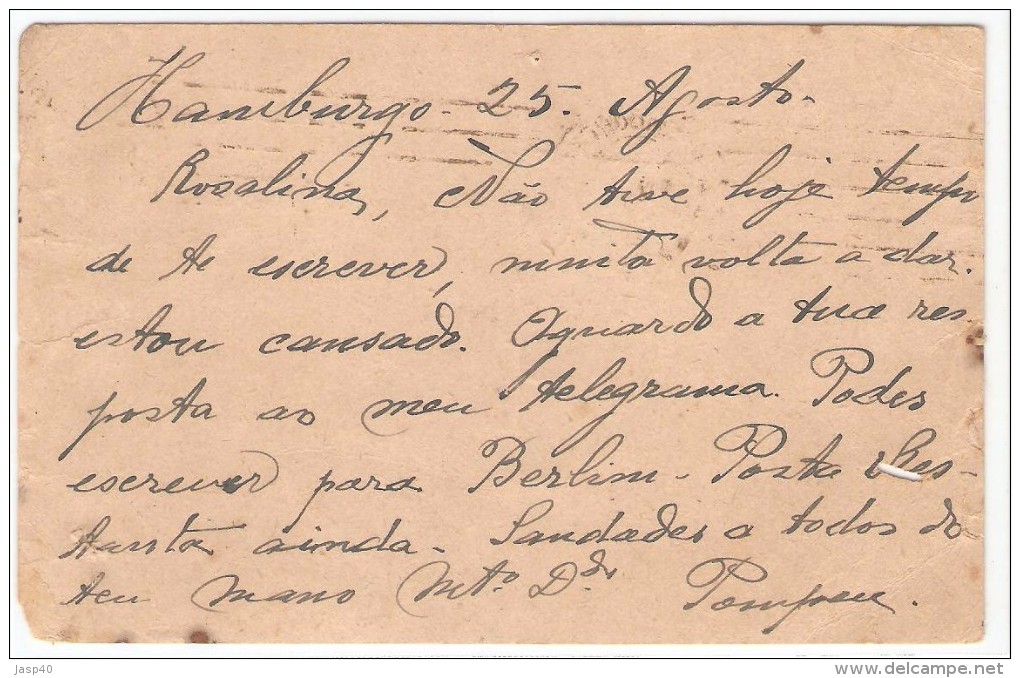 Hamburgo - 25 - Agosto -
Rosalina, Não tive hoje tempo
de te escrever, muita volta a dar.
estou cansado. Aguardo a tua res-
posta ao meu telegrama. Podes
escrever para Berlim - Posta Res-
tante ainda - Saudades a todos do
teu mano Mto. Ddo. Pompeu.
jasp40
www.delcampe.net